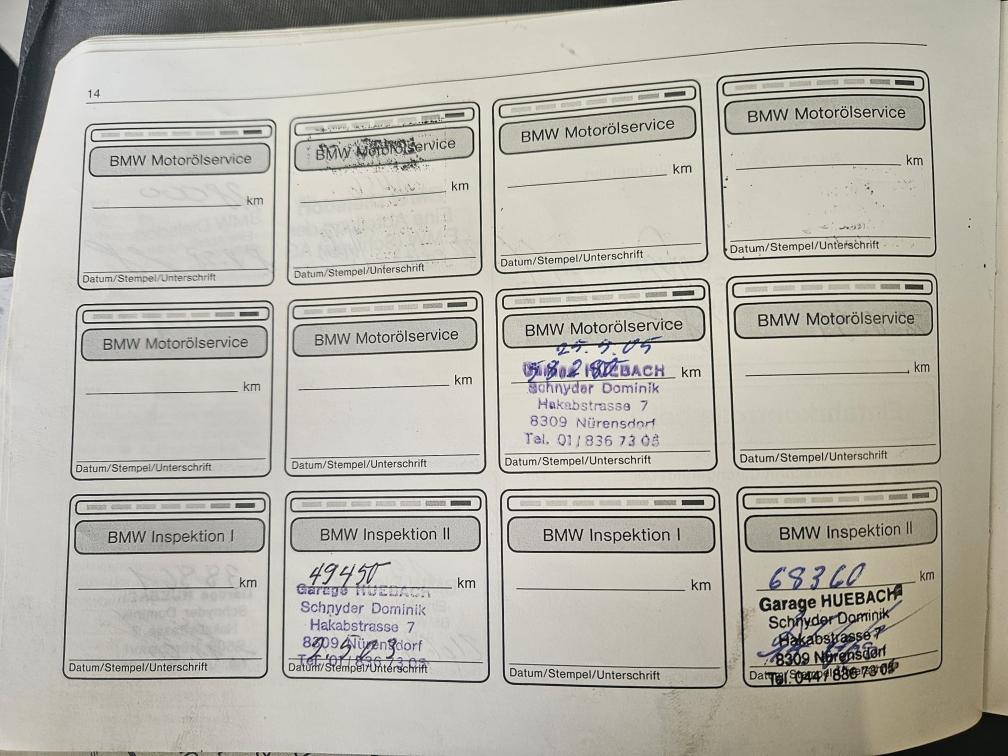 14
BMW Motorölservice
km
Datum/Stempel/Unterschrift
BMW Motorölservice
km
Datum/Stempel/Unterschrift
BMW Motorölservice
km
Datum/Stempel/Unterschrift
BMW Motorölservice
km
Datum/Stempel/Unterschrift
BMW Motorölservice
km
Datum/Stempel/Unterschrift
BMW Motorölservice
km
Datum/Stempel/Unterschrift
BMW Motorölservice
25.5.05
km
HUEBACH
Schnyder Dominik
Hakabstrasse 7
8309 Nürensdorf
Tel. 01/836 73 08
Datum/Stempel/Unterschrift
BMW Motorölservice
km
Datum/Stempel/Unterschrift
BMW Inspektion I
km
Datum/Stempel/Unterschrift
BMW Inspektion II
49450 km
Garage HUEBACH
Schnyder Dominik
Hakabstrasse 7
8309 Nürensdorf
Tel. 01/836 73 08
Datum/Stempel/Unterschrift
BMW Inspektion I
km
Datum/Stempel/Unterschrift
BMW Inspektion II
68360 km
Garage HUEBACH
Schnyder Dominik
Hakabstrasse 7
8309 Nürensdorf
Tel. 044/836 73 08